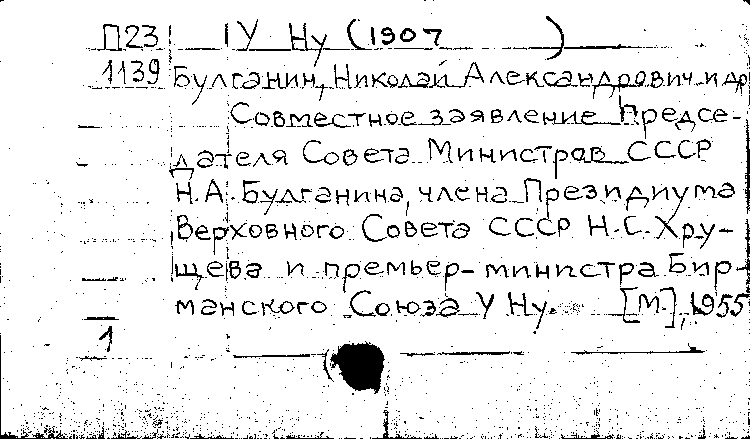 П23 У Ну (1907 )
1139 Булганин, Николай Александрович и др
Совместное заявление Предсе-
дателя Совета Министров СССР
Н.А. Булганина, члена Президиума
Верховного Совета СССР Н.С. Хру-
щева и премьер-министра Бир-
манского Союза У Ну. [М.], 1955
1